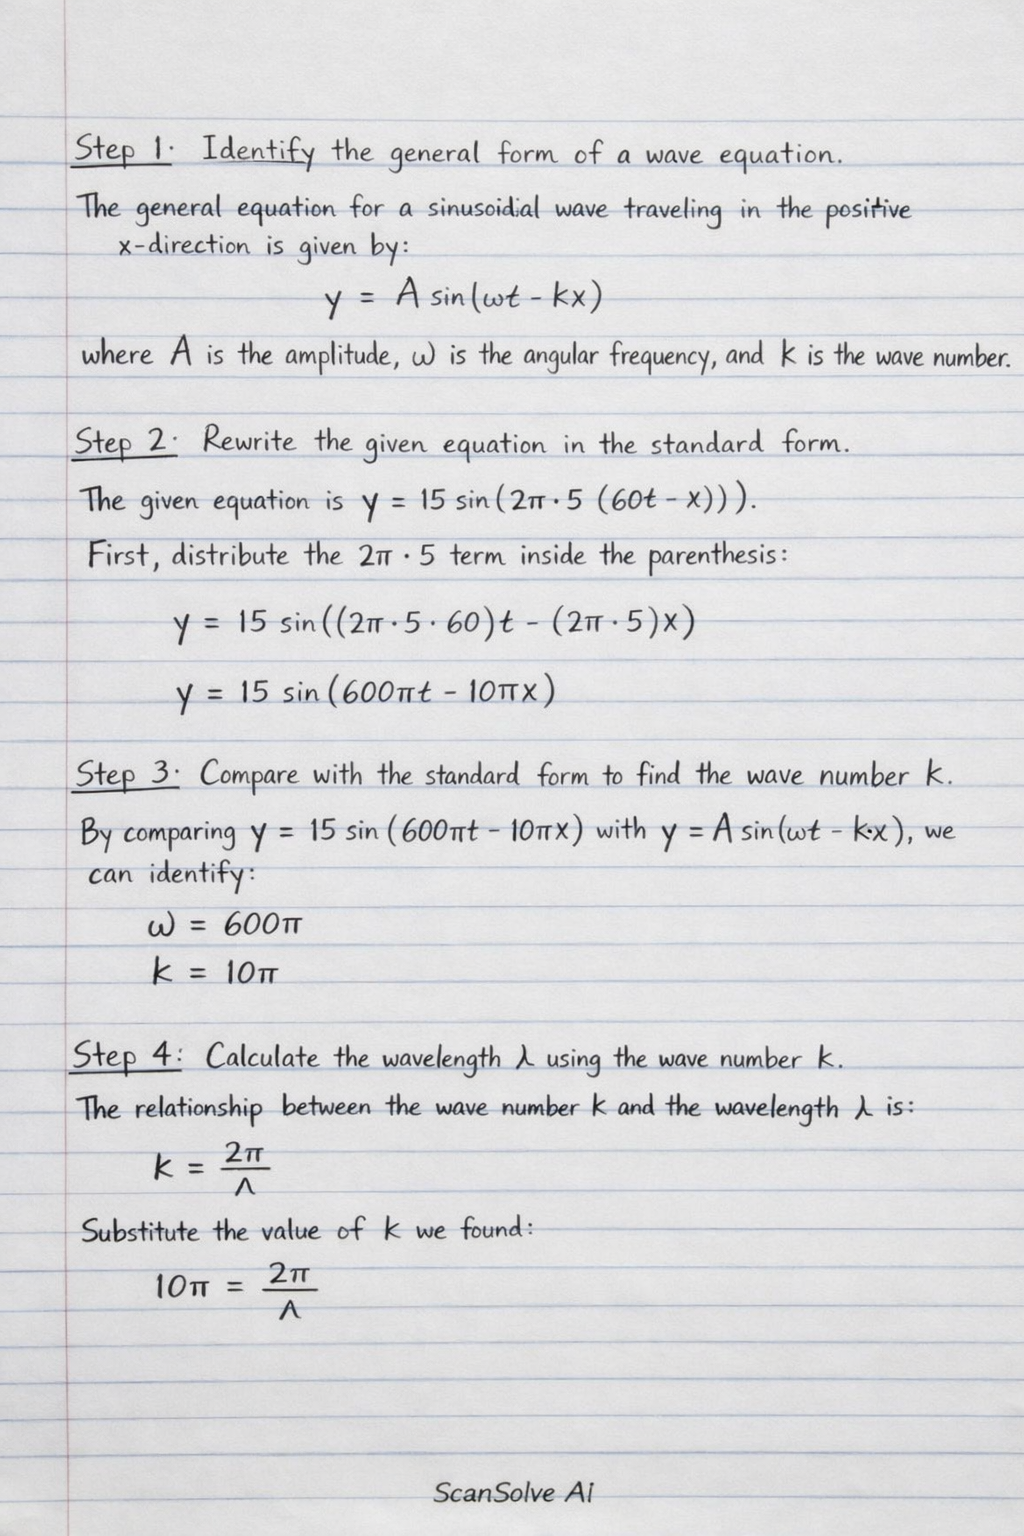 Step 1· Identify the general form of a wave equation.
The general equation for a sinusoidal wave traveling in the positive
x-direction is given by:
y = A sin(ωt - kx)
where A is the amplitude, ω is the angular frequency, and k is the wave number.
Step 2· Rewrite the given equation in the standard form.
The given equation is y = 15 sin(2π·5 (60t - x))).
First, distribute the 2π · 5 term inside the parenthesis:
y = 15 sin((2π·5·60)t - (2π·5)x)
y = 15 sin(600πt - 10πx)
Step 3· Compare with the standard form to find the wave number k.
By comparing y = 15 sin(600πt - 10πx) with y = A sin(ωt - k·x), we
can identify:
ω = 600π
k = 10π
Step 4: Calculate the wavelength λ using the wave number k.
The relationship between the wave number k and the wavelength λ is:
k = 2π/Λ
Substitute the value of k we found:
10π = 2π/Λ
ScanSolve Ai